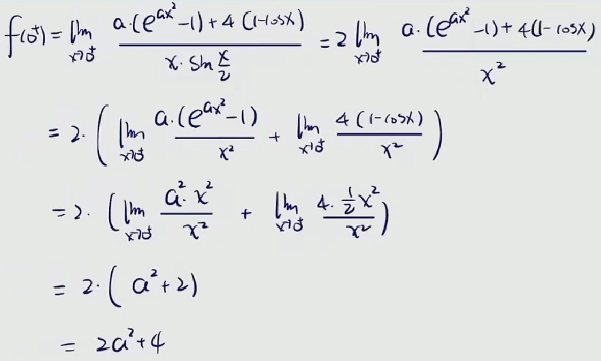 f(0⁺) = lim_{x→0⁺} \frac{a·(e^{ax²}-1)+4(1-cosx)}{x·sin\frac{x}{2}} = 2 lim_{x→0⁺} \frac{a·(e^{ax²}-1)+4(1-cosx)}{x²}
= 2·( lim_{x→0⁺} \frac{a·(e^{ax²}-1)}{x²} + lim_{x→0⁺} \frac{4(1-cosx)}{x²} )
= 2·( lim_{x→0⁺} \frac{a²·x²}{x²} + lim_{x→0⁺} \frac{4·\frac{1}{2}x²}{x²} )
= 2·( a²+2)
= 2a²+4